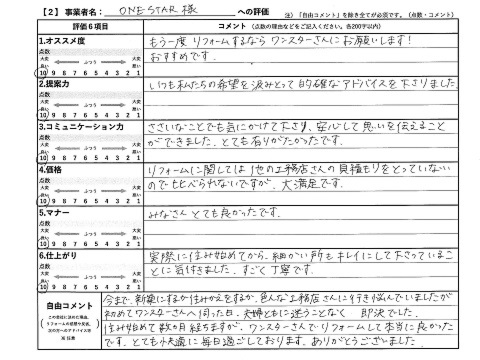 【2】事業者名： ONE STAR 様 への評価
注）「自由コメント」を除き全てが必須です。（点数・コメント）
評価6項目 コメント（点数の理由などをご記入ください。各200字以内）
1.オススメ度
もう一度 リフォームするなら ワンスターさんにお願いします！
おすすめです。
点数
大変良い ふつう 大変悪い
10 9 8 7 6 5 4 3 2 1
2.提案力
いつも私たちの希望を汲みとって 的確なアドバイスを下さりました
点数
大変良い ふつう 大変悪い
10 9 8 7 6 5 4 3 2 1
3.コミュニケーション力
ささいなことでも気にかけて下さり、安心して思いを伝えること
ができました。とても有りがたかったです。
点数
大変良い ふつう 大変悪い
10 9 8 7 6 5 4 3 2 1
4.価格
リフォームに関しては 他の工務店さんの見積もりをとっていない
ので比べられないですが、大満足です。
点数
大変良い ふつう 大変悪い
10 9 8 7 6 5 4 3 2 1
5.マナー
みなさん とても良かったです。
点数
大変良い ふつう 大変悪い
10 9 8 7 6 5 4 3 2 1
6.仕上がり
実際に住み始めてから、細かい所もキレイにして下さっているこ
とに気付きました。すごく丁寧です。
点数
大変良い ふつう 大変悪い
10 9 8 7 6 5 4 3 2 1
自由コメント
今まで、新築にするか住みかえをするか、色んな工務店さんに行き悩んでいましたが
初めてワンスターさんへ伺った日、夫婦ともに迷うことなく 即決でした。
住み始めて数ヵ月経ちますが、ワンスターさんでリフォームして本当に良かった
です。とても快適に毎日過ごしております。ありがとうございました。